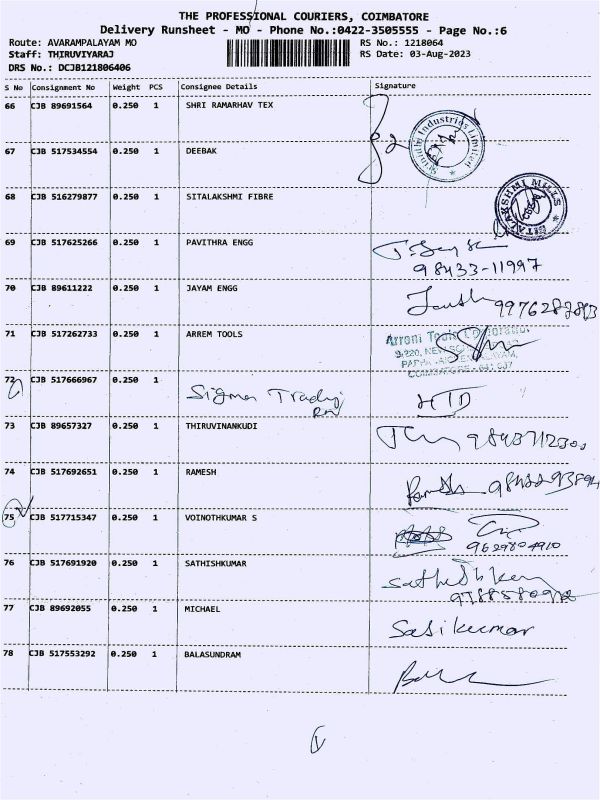 THE PROFESSIONAL COURIERS, COIMBATORE
Delivery Runsheet - MO - Phone No.:0422-3505555 - Page No.:6
Route: AVARAMPALAYAM MO RS No.: 1218064
Staff: THIRUVIYARAJ RS Date: 03-Aug-2023
DRS No.: DCJB121806406
S No Consignment No Weight PCS Consignee Details Signature
66 CJB 89691564 0.250 1 SHRI RAMARHAV TEX
67 CJB 517534554 0.250 1 DEEBAK
Industries Limited
68 CJB 516279877 0.250 1 SITALAKSHMI FIBRE
SITALAKSHMI MILLS
69 CJB 517625266 0.250 1 PAVITHRA ENGG
98433-11997
70 CJB 89611222 0.250 1 JAYAM ENGG
71 CJB 517262733 0.250 1 ARREM TOOLS
Tools
72 CJB 517666967 0.250 1
Sigma Trading
73 CJB 89657327 0.250 1 THIRUVINANKUDI
74 CJB 517692651 0.250 1 RAMESH
75 CJB 517715347 0.250 1 VOINOTHKUMAR S
9629804910
76 CJB 517691920 0.250 1 SATHISHKUMAR
77 CJB 89692055 0.250 1 MICHAEL Sasikumar
78 CJB 517553292 0.250 1 BALASUNDRAM